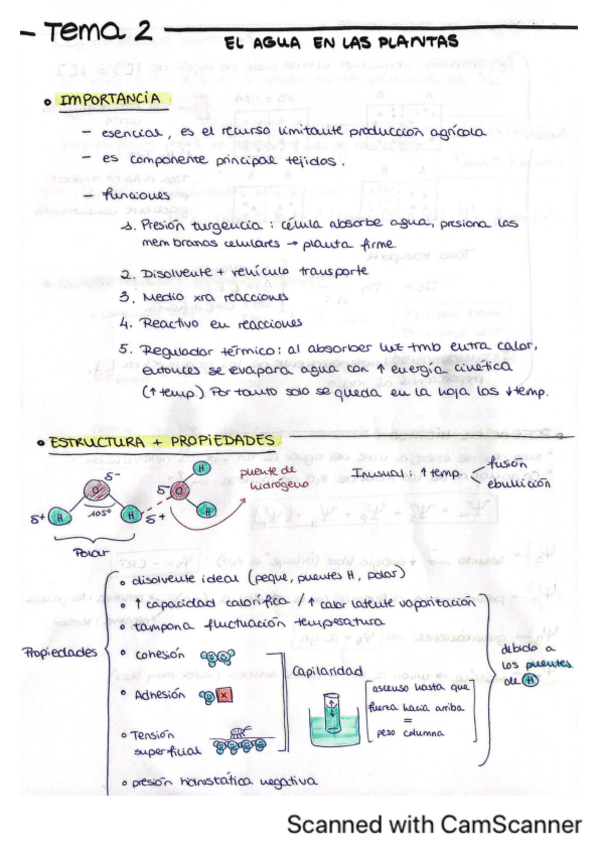 - Tema 2
EL AGUA EN LAS PLANTAS
• IMPORTANCIA
- esencial, es el recurso limitante producción agrícola
- es componente principal tejidos.
- funciones
1. Presión turgencia: célula absorbe agua, presiona las
membranas celulares → planta firme
2. Disolvente + vehículo transporte
3. Medio xra reacciones
4. Reactivo en reacciones
5. Regulador térmico: al absorber luz tmb entra calor,
entonces se evapara agua con ↑ energía cinética
(↑ temp.) Por tanto solo se queda en la hoja las ↓ temp.
• ESTRUCTURA + PROPIEDADES
puente de
hidrógeno
Inusual: ↑ temp
fusión
ebullición
δ-
O
105º
δ+ H
H δ+
δ- O
H
H
Polar
Propiedades
• disolvente ideal (peque, puentes H, polar)
• ↑ capacidad calorífica / ↑ calor latente vaporización
• tampona fluctuación temperatura
• Cohesión
• Adhesión
x
• Tensión
superficial
Capilaridad
ascenso hasta que
fuerza hacia arriba
=
peso columna
debido a
los puentes
de H
• presión hidrostática negativa
Scanned with CamScanner